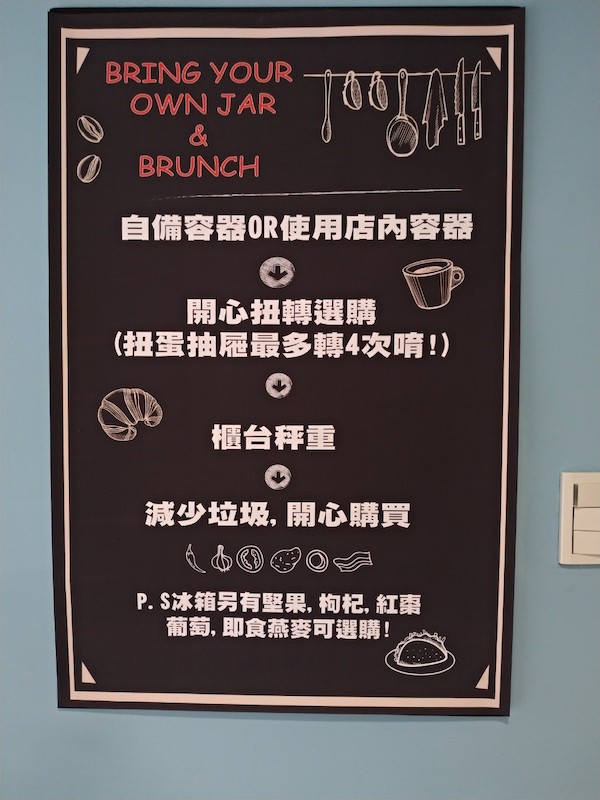 BRING YOUR
OWN JAR
&
BRUNCH
自備容器OR使用店內容器
開心扭轉選購
(扭蛋抽屜最多轉4次唷!)
櫃台秤重
減少垃圾,開心購買
P.S冰箱另有堅果,枸杞,紅棗
葡萄,即食燕麥可選購!